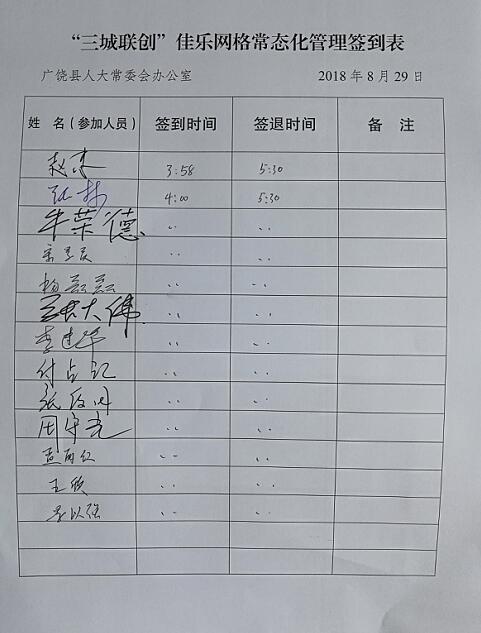 “三城联创”佳乐网格常态化管理签到表
广饶县人大常委会办公室 2018年8月29日
姓 名（参加人员） 签到时间 签退时间 备 注
3:58 5:30
4:00 5:30
牛荣德 〃 〃
〃 〃
杨磊磊 〃 〃
〃 〃
李建华 〃 〃
付占记 〃 〃
〃 〃
周守亮 〃 〃
〃 〃
王欣 〃 〃
李以强 〃 〃